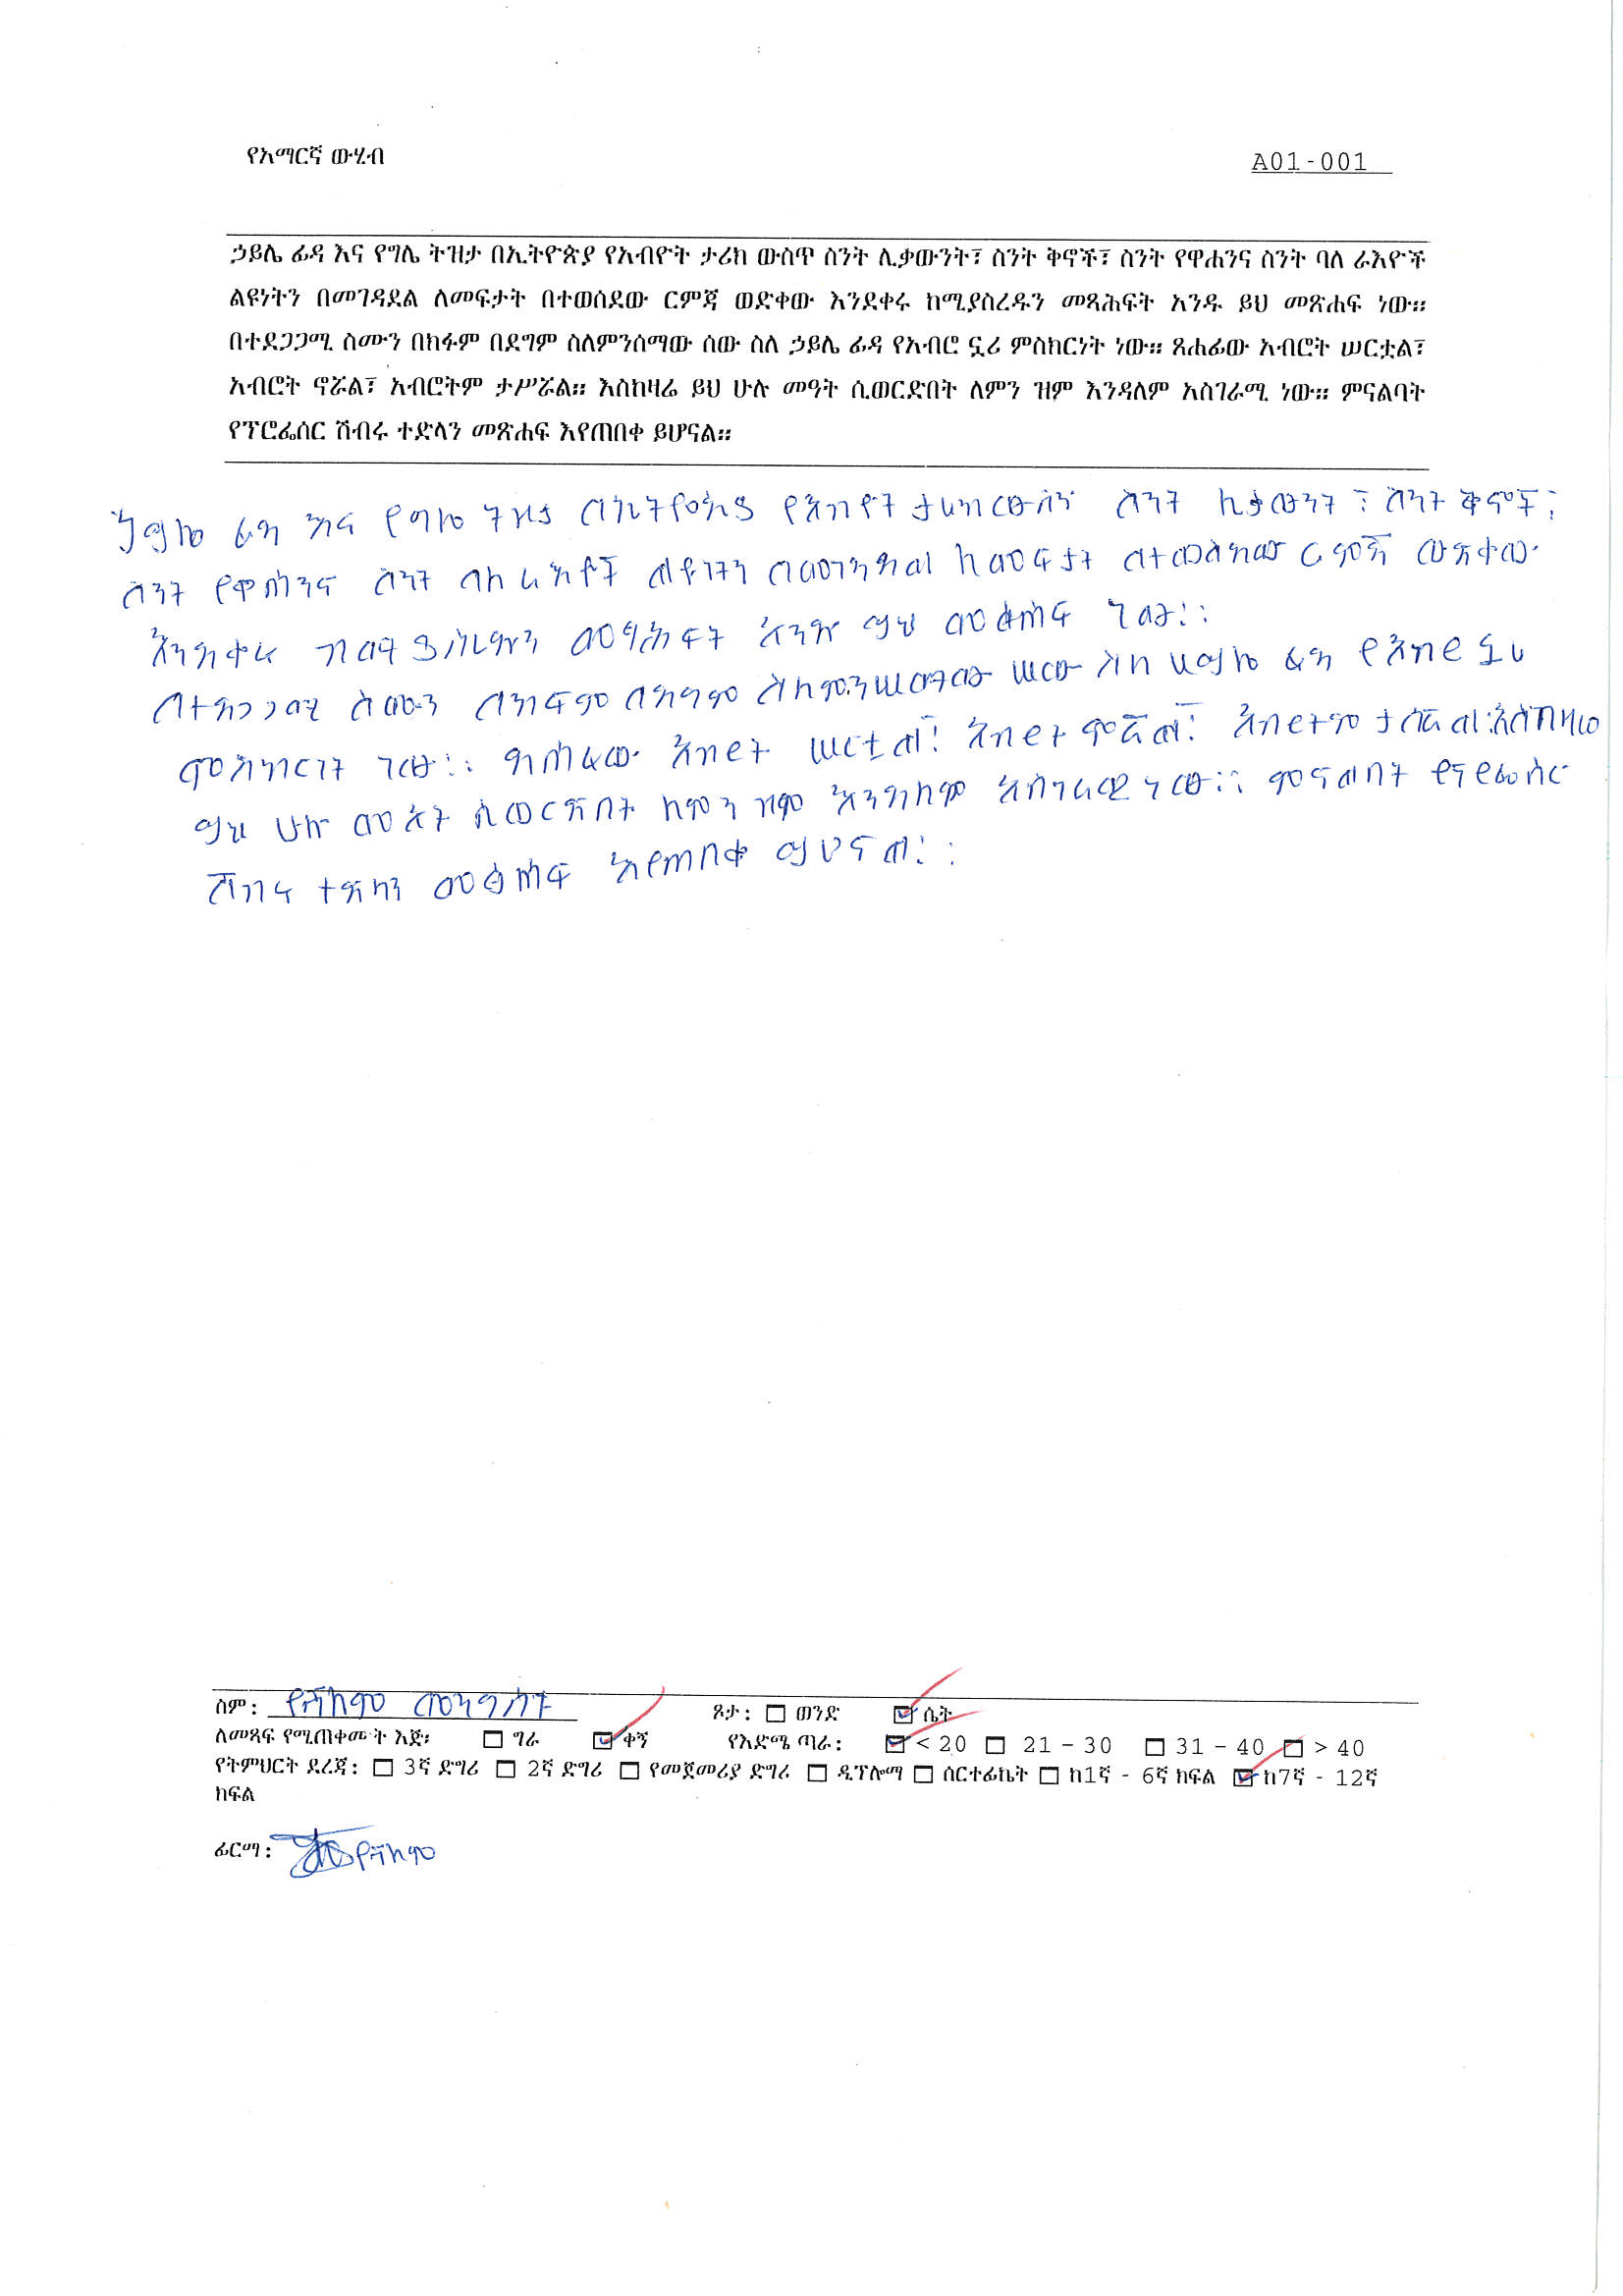 የአማርኛ ውሂብ
A01-001
ኃይሌ ፊዳ እና የግሌ ትዝታ በኢትዮጵያ የአብዮት ታሪክ ውስጥ ስንት ሊቃውንት፣ ስንት ቅኖች፣ ስንት የዋሐንና ስንት ባለ ራእዮች
ልዩነትን በመገዳደል ለመፍታት በተወሰደው ርምጃ ወድቀው እንደቀሩ ከሚያስረዱን መጻሕፍት አንዱ ይህ መጽሐፍ ነው።
በተደጋጋሚ ስሙን በክፉም በደግም ስለምንሰማው ሰው ስለ ኃይሌ ፊዳ የአብሮ ኗሪ ምስክርነት ነው። ጸሐፊው አብሮት ሠርቷል፣
አብሮት ኖሯል፣ አብሮትም ታሥሯል። እስከዛሬ ይህ ሁሉ መዓት ሲወርድበት ለምን ዝም እንዳለም አስገራሚ ነው። ምናልባት
የፕሮፌሰር ሽብሩ ተድላን መጽሐፍ እየጠበቀ ይሆናል።
ፊዳ እና የግሌ ትዝታ የአብዮት ስንት ሊቃውንት ፣ ስንት ቅኖች፣
ስንት የዋሐንና ስንት ባለ ራእዮች ልዩነትን በመገንዳል ለመፍታት በተወሰደው ርምጃ ወድቀው
እንደቀሩ መፃሕፍት አንዱ ይህ መፅሐፍ ነው።
በተደጋጋሚ ስሙን በክፍም በደግም ሠው ስለ ሀይሌ ፊዳ የአብሮ ኗሪ
ምስክርነት ነው። ፃሐፊው አብሮት ሠርቷል፣ አብሮት አብሮትም ታስሯል።እስከዛሬ
ይህ ሁሉ መአት ሲወርድበት ለምን ዝም እንዳለም አስገራሚ ነው። ምናልባት
ሽብሩ ተድላን መፅሐፍ እየጠበቀ ይሆናል።
ስም: የሻለም መንግስቱ ጾታ: ወንድ ሴት
ለመጻፍ የሚጠቀሙት እጅ፡ ግራ ቀኝ የእድሜ ጣራ: < 20 21 – 30 31 – 40 > 40
የትምህርት ደረጃ: 3ኛ ድግሪ 2ኛ ድግሪ የመጀመሪያ ድግሪ ዲፕሎማ ሰርተፊኬት ከ1ኛ - 6ኛ ክፍል ከ7ኛ - 12ኛ
ክፍል
ፊርማ: የሻለም